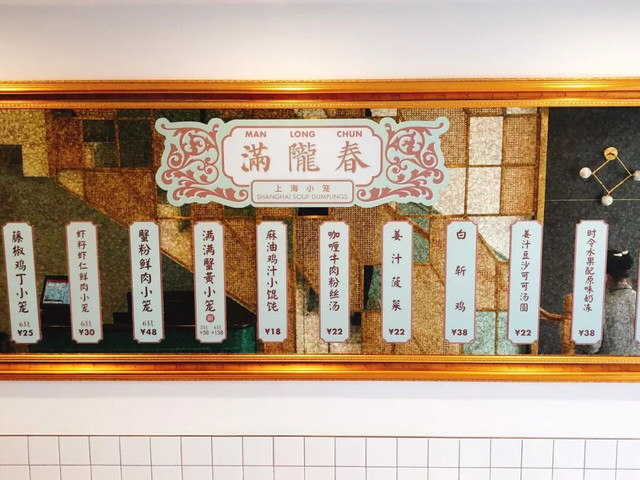 MAN LONG CHUN
滿隴春
上海小笼
SHANGHAI SOUP DUMPLINGS
藤椒鸡丁小笼
6只
¥25
虾籽虾仁鲜肉小笼
6只
¥30
蟹粉鲜肉小笼
6只
¥48
满满蟹黄小笼
2只 6只
¥58 ¥138
麻油鸡汁小馄饨
¥18
咖喱牛肉粉丝汤
¥22
姜汁菠菜
¥22
白斩鸡
¥38
姜汁豆沙可可汤圆
¥22
时令水果配原味奶冻
¥38